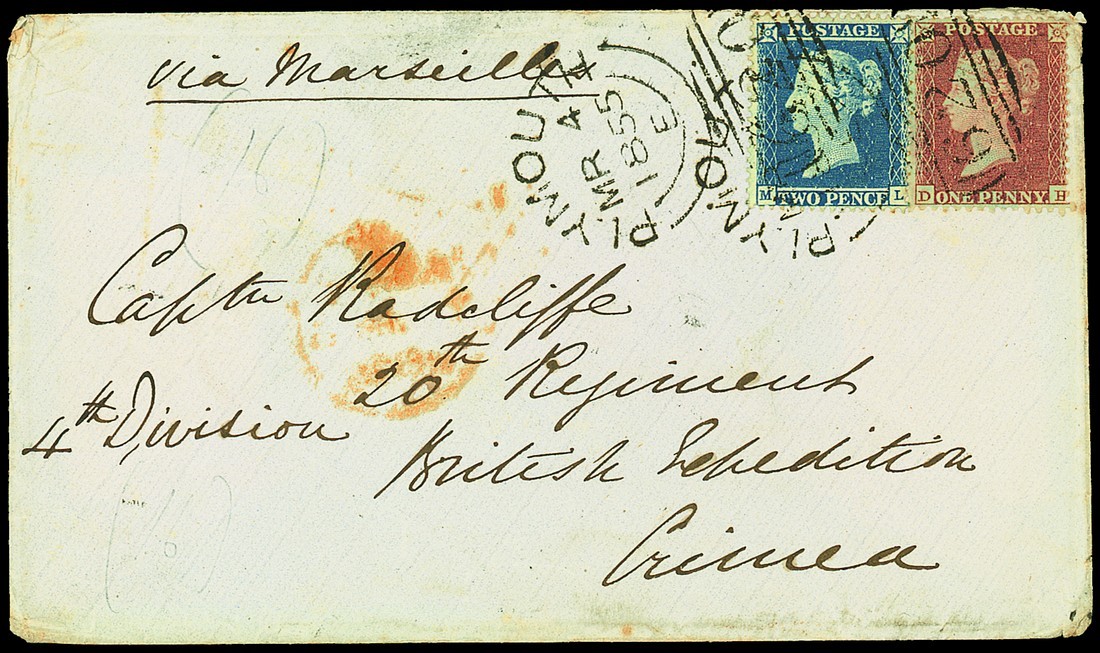 via Marseilles
PLYMOUTH
MR 4
1855
E
PLYMOU
620
POSTAGE
TWO PENCE
M L
POSTAGE
ONE PENNY
D H
Captn Radcliffe
20th Regiment
4th Division
British Expedition
Crimea